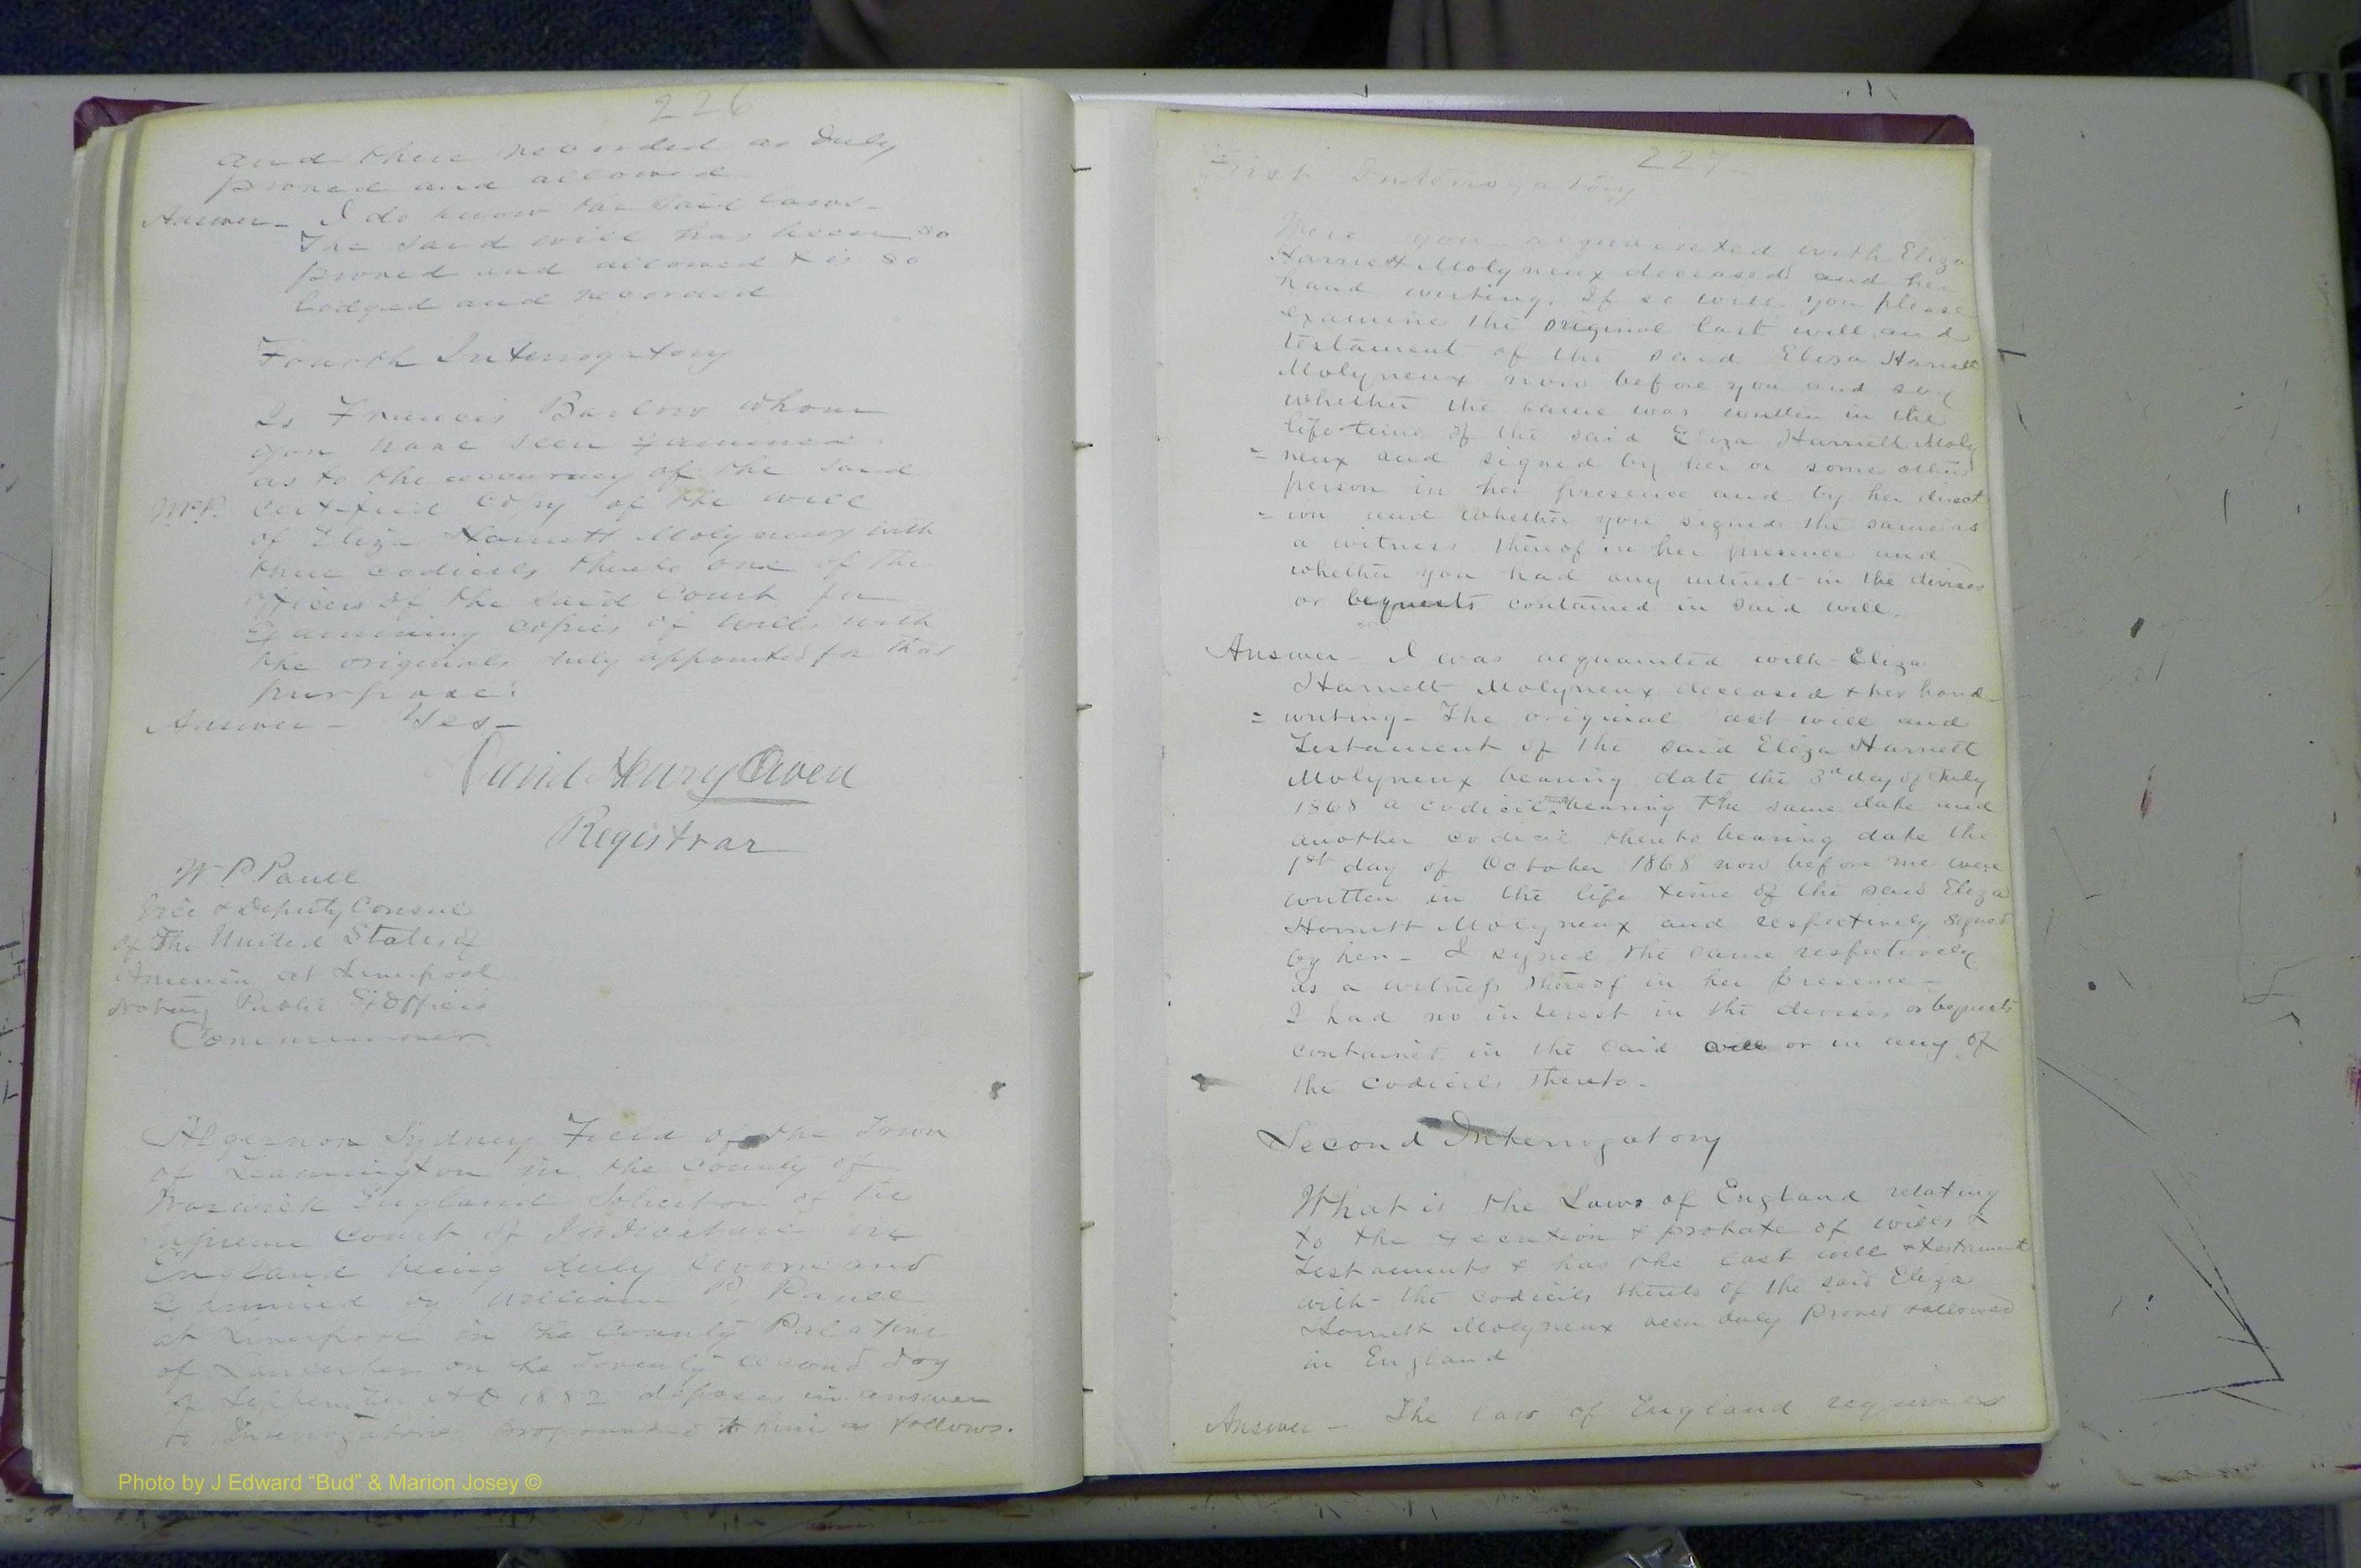 226
and there recorded as duly
proved and allowed
Answer - I do know the said laws -
The said will has been so
proved and allowed & is so
lodged and recorded
Fourth Interrogatory
Is Francis Barlow whom
you have seen examined
as to the accuracy of the said
W.P.P. certified copy of the will
of Eliza Harriett Molyneux with
three codicils thereto one of the
officers of the said Court for
Examining copies of wills with
the originals duly appointed for that
purpose:
Answer - Yes -
David Henry Owen
Registrar
W P Paull
Vice & Deputy Consul
of The United States of
America at Liverpool
Notary Public Ex Officio
Commissioner
Algernon Sydney Field of the Town
of Leamington in the county of
Warwick England Solicitor of the
Supreme Court of Judicature in
England being duly sworn and
Examined by William P. Paull
at Liverpool in the County Palatine
of Lancaster on the Twenty second day
of September AD 1882 deposes in answer
to Interrogatories propounded to him as follows.
227
First Interrogatory
Were you acquainted with Eliza
Harriett Molyneux deceased and her
hand writing. If so will you please
examine the original last will and
testament of the said Eliza Harriett
Molyneux now before you and say
whether the same was written in the
life time of the said Eliza Harriett Moly
= neux and signed by her or some other
person in her presence and by her direct
- ion and whether you signed the same as
a witness thereof in her presence and
whether you had any interest in the devises
or bequests contained in said will.
Answer - I was acquainted with Eliza
Harriett Molyneux deceased & her hand
= writing - The original last will and
Testament of the said Eliza Harriett
Molyneux bearing date the 3d day of July
1868 a codicil thereto bearing the same date and
another codicil thereto bearing date the
1st day of October 1868 now before me were
written in the life time of the said Eliza
Harriett Molyneux and respectively signed
by her - I signed the same respectively
as a witness thereof in her presence -
I had no interest in the devises or bequests
contained in the said will or in any of
the codicils thereto -
Second Interrogatory
What is the Laws of England relating
to the execution & probate of wills &
Testaments & has the last will & testament
with the codicils thereto of the said Eliza
Harriett Molyneux been duly proved & allowed
in England
Answer - The law of England requires
Photo by J Edward “Bud” & Marion Josey ©